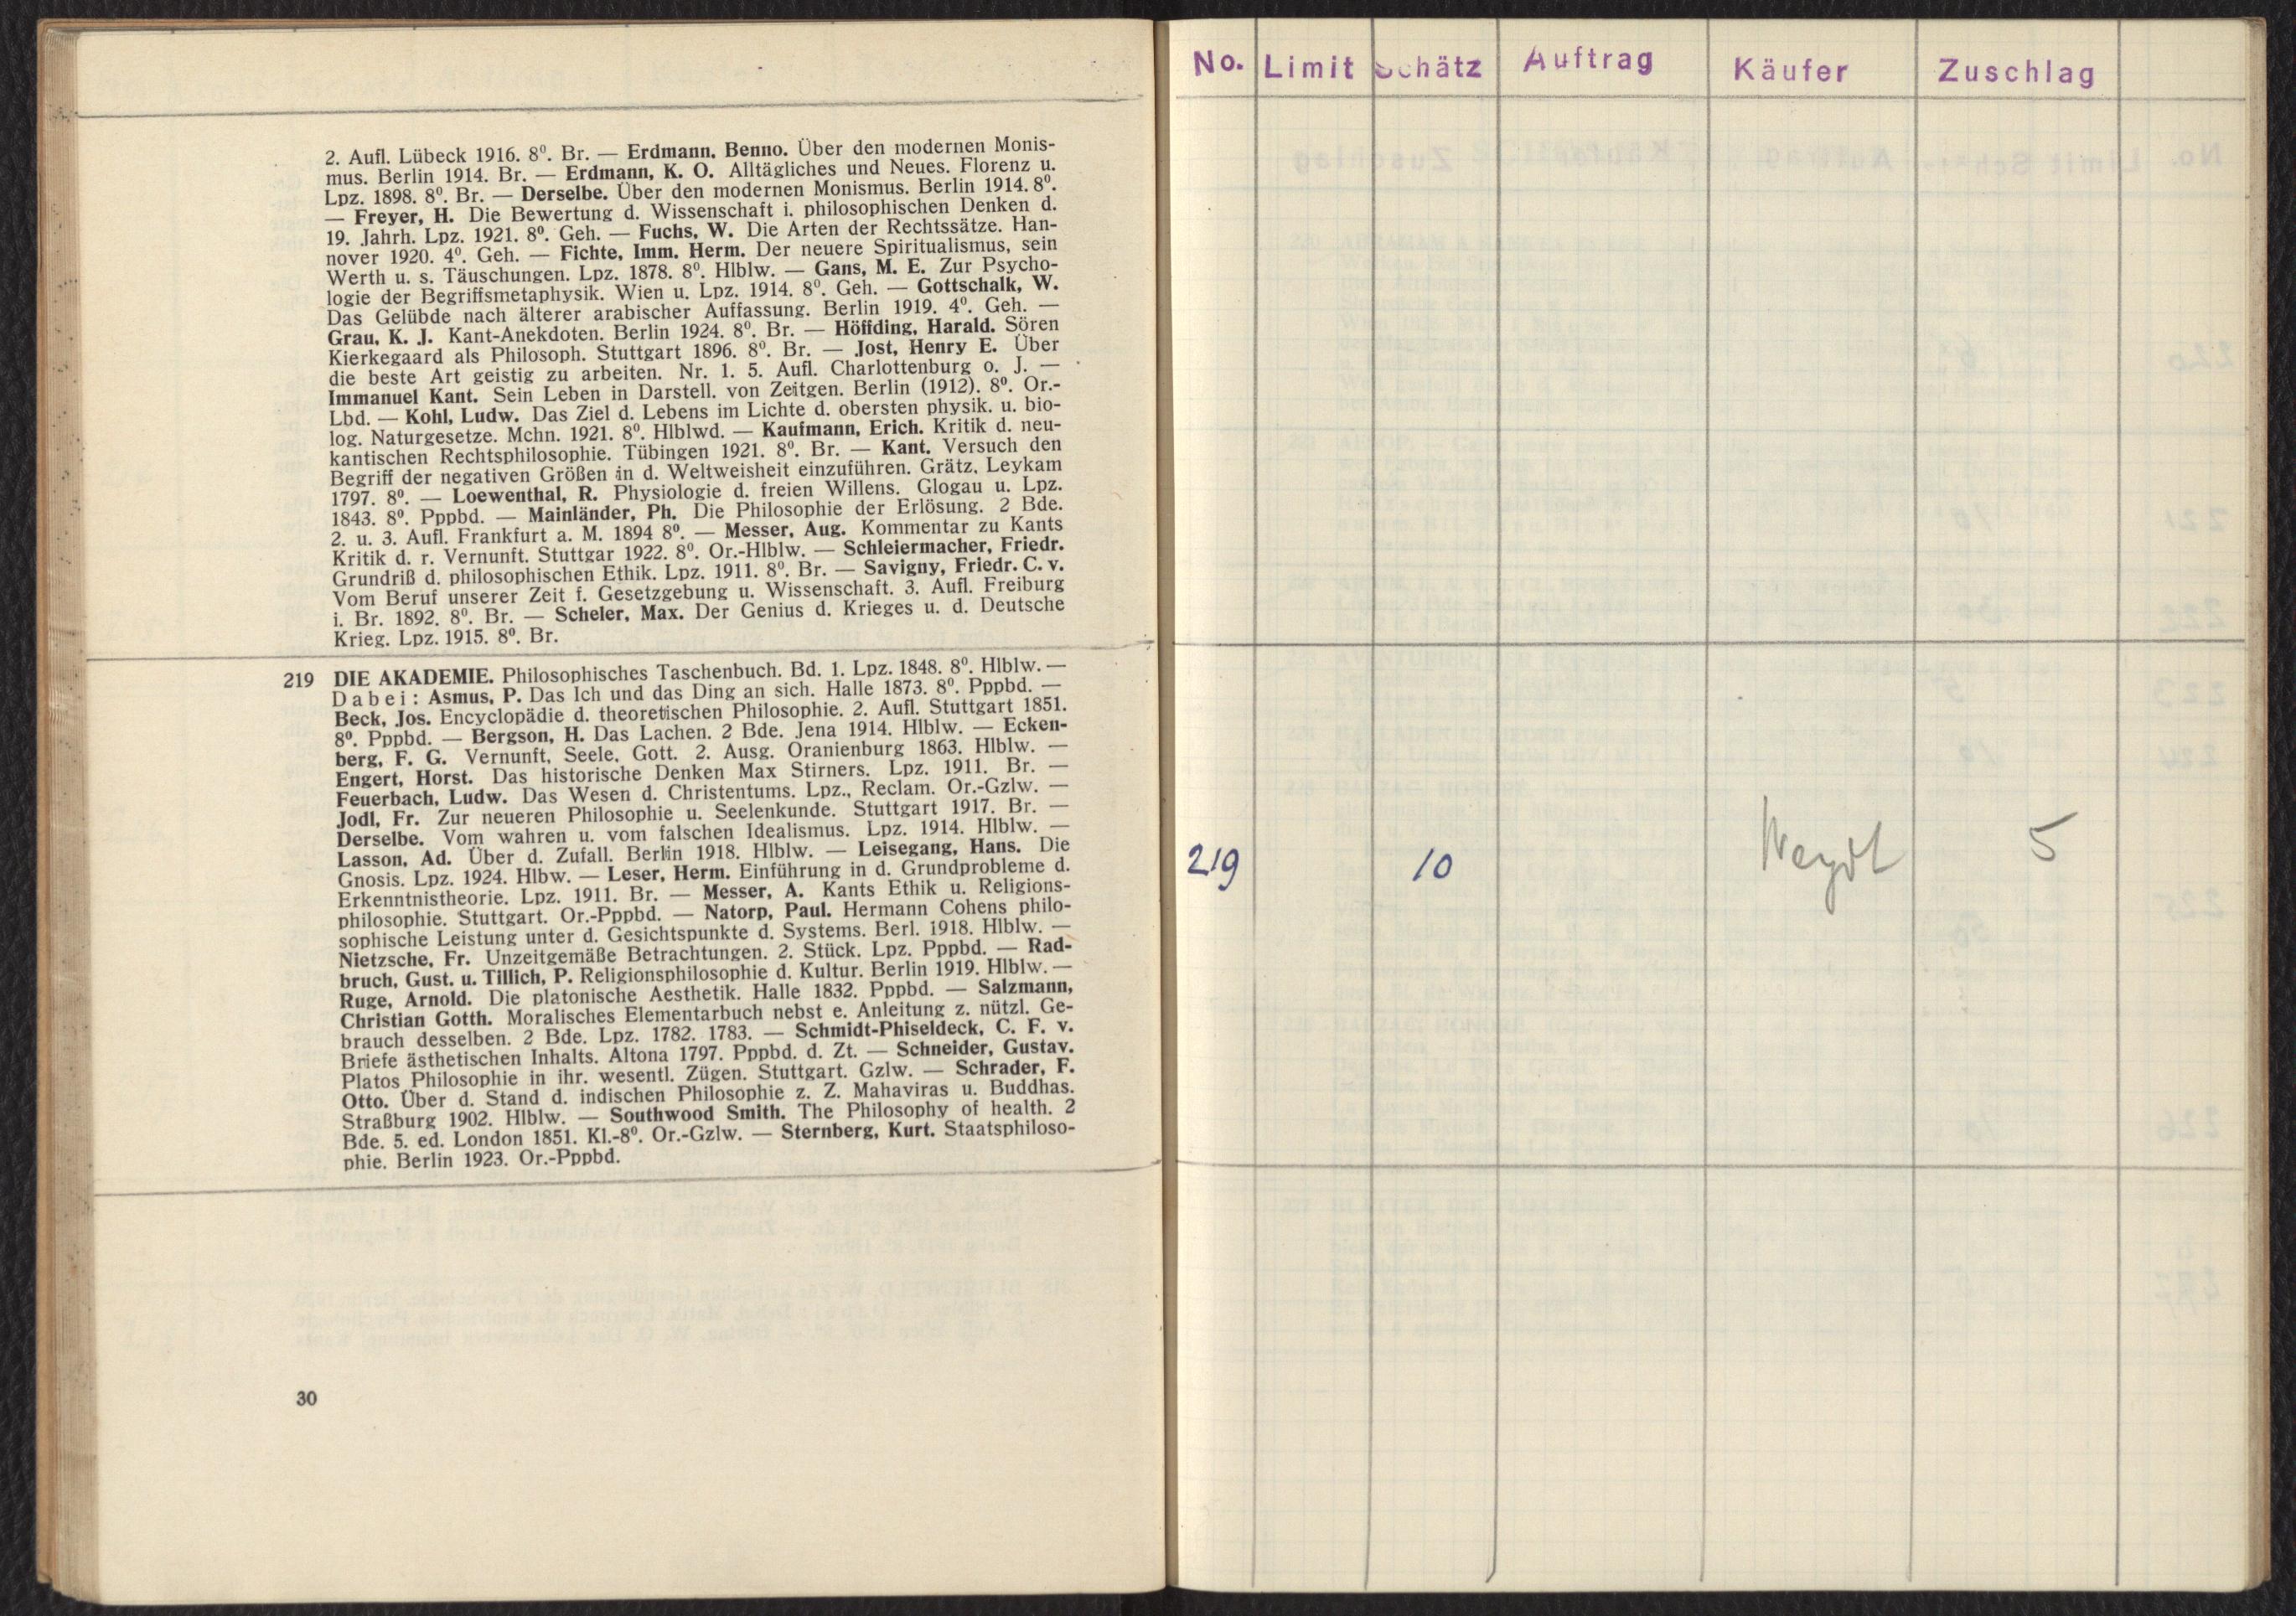 2. Aufl. Lübeck 1916. 8⁰. Br. — Erdmann, Benno. Über den modernen Monis-
mus. Berlin 1914. Br. — Erdmann, K. O. Alltägliches und Neues. Florenz u.
Lpz. 1898. 8⁰. Br. — Derselbe. Über den modernen Monismus. Berlin 1914. 8⁰.
— Freyer, H. Die Bewertung d. Wissenschaft i. philosophischen Denken d.
19. Jahrh. Lpz. 1921. 8⁰. Geh. — Fuchs, W. Die Arten der Rechtssätze. Han-
nover 1920. 4⁰. Geh. — Fichte, Imm. Herm. Der neuere Spiritualismus, sein
Werth u. s. Täuschungen. Lpz. 1878. 8⁰. Hlblw. — Gans, M. E. Zur Psycho-
logie der Begriffsmetaphysik. Wien u. Lpz. 1914. 8⁰. Geh. — Gottschalk, W.
Das Gelübde nach älterer arabischer Auffassung. Berlin 1919. 4⁰. Geh. —
Grau, K. J. Kant-Anekdoten. Berlin 1924. 8⁰. Br. — Höffding, Harald. Sören
Kierkegaard als Philosoph. Stuttgart 1896. 8⁰. Br. — Jost, Henry E. Über
die beste Art geistig zu arbeiten. Nr. 1. 5. Aufl. Charlottenburg o. J. —
Immanuel Kant. Sein Leben in Darstell. von Zeitgen. Berlin (1912). 8⁰. Or.-
Lbd. — Kohl, Ludw. Das Ziel d. Lebens im Lichte d. obersten physik. u. bio-
log. Naturgesetze. Mchn. 1921. 8⁰. Hlblwd. — Kaufmann, Erich. Kritik d. neu-
kantischen Rechtsphilosophie. Tübingen 1921. 8⁰. Br. — Kant. Versuch den
Begriff der negativen Größen in d. Weltweisheit einzuführen. Grätz, Leykam
1797. 8⁰. — Loewenthal, R. Physiologie d. freien Willens. Glogau u. Lpz.
1843. 8⁰. Pppbd. — Mainländer, Ph. Die Philosophie der Erlösung. 2 Bde.
2. u. 3. Aufl. Frankfurt a. M. 1894 8⁰. — Messer, Aug. Kommentar zu Kants
Kritik d. r. Vernunft. Stuttgar 1922. 8⁰. Or.-Hlblw. — Schleiermacher, Friedr.
Grundriß d. philosophischen Ethik. Lpz. 1911. 8⁰. Br. — Savigny, Friedr. C. v.
Vom Beruf unserer Zeit f. Gesetzgebung u. Wissenschaft. 3. Aufl. Freiburg
i. Br. 1892. 8⁰. Br. — Scheler, Max. Der Genius d. Krieges u. d. Deutsche
Krieg. Lpz. 1915. 8⁰. Br.
219 DIE AKADEMIE. Philosophisches Taschenbuch. Bd. 1. Lpz. 1848. 8⁰. Hlblw. —
Dabei: Asmus, P. Das Ich und das Ding an sich. Halle 1873. 8⁰. Pppbd. —
Beck, Jos. Encyclopädie d. theoretischen Philosophie. 2. Aufl. Stuttgart 1851.
8⁰. Pppbd. — Bergson, H. Das Lachen. 2 Bde. Jena 1914. Hlblw. — Ecken-
berg, F. G. Vernunft, Seele, Gott. 2. Ausg. Oranienburg 1863. Hlblw. —
Engert, Horst. Das historische Denken Max Stirners. Lpz. 1911. Br. —
Feuerbach, Ludw. Das Wesen d. Christentums. Lpz., Reclam. Or.-Gzlw. —
Jodl, Fr. Zur neueren Philosophie u. Seelenkunde. Stuttgart 1917. Br. —
Derselbe. Vom wahren u. vom falschen Idealismus. Lpz. 1914. Hlblw. —
Lasson, Ad. Über d. Zufall. Berlin 1918. Hlblw. — Leisegang, Hans. Die
Gnosis. Lpz. 1924. Hlbw. — Leser, Herm. Einführung in d. Grundprobleme d.
Erkenntnistheorie. Lpz. 1911. Br. — Messer, A. Kants Ethik u. Religions-
philosophie. Stuttgart. Or.-Pppbd. — Natorp, Paul. Hermann Cohens philo-
sophische Leistung unter d. Gesichtspunkte d. Systems. Berl. 1918. Hlblw. —
Nietzsche, Fr. Unzeitgemäße Betrachtungen. 2. Stück. Lpz. Pppbd. — Rad-
bruch, Gust. u. Tillich, P. Religionsphilosophie d. Kultur. Berlin 1919. Hlblw. —
Ruge, Arnold. Die platonische Aesthetik. Halle 1832. Pppbd. — Salzmann,
Christian Gotth. Moralisches Elementarbuch nebst e. Anleitung z. nützl. Ge-
brauch desselben. 2 Bde. Lpz. 1782. 1783. — Schmidt-Phiseldeck, C. F. v.
Briefe ästhetischen Inhalts. Altona 1797. Pppbd. d. Zt. — Schneider, Gustav.
Platos Philosophie in ihr. wesentl. Zügen. Stuttgart. Gzlw. — Schrader, F.
Otto. Über d. Stand d. indischen Philosophie z. Z. Mahaviras u. Buddhas.
Straßburg 1902. Hlblw. — Southwood Smith. The Philosophy of health. 2
Bde. 5. ed. London 1851. Kl.-8⁰. Or.-Gzlw. — Sternberg, Kurt. Staatsphiloso-
phie. Berlin 1923. Or.-Pppbd.
30
No. Limit Schätz Auftrag Käufer Zuschlag
219 10 5